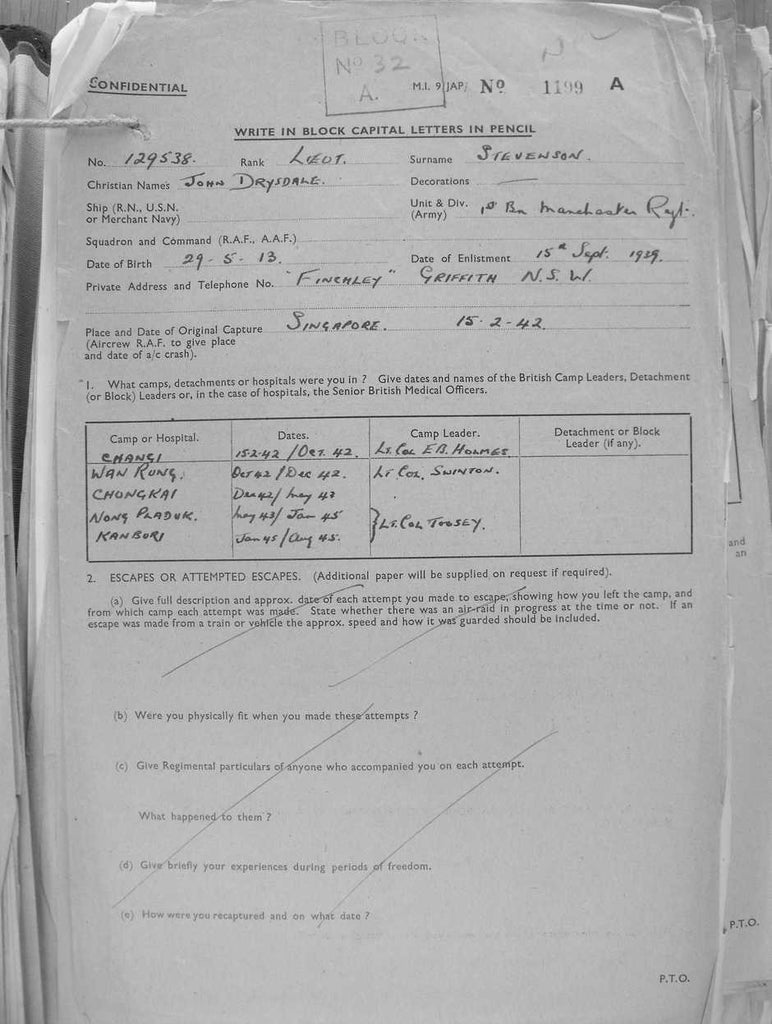 BLOCK
Nº 32
A.
CONFIDENTIAL
M.I. 9/JAP/ Nº 1199 A
WRITE IN BLOCK CAPITAL LETTERS IN PENCIL
No. 129538. Rank LIEUT. Surname STEVENSON.
Christian Names JOHN DRYSDALE. Decorations —
Ship (R.N., U.S.N. or Merchant Navy)
Unit & Div. (Army) 1st Bn Manchester Regt.
Squadron and Command (R.A.F., A.A.F.)
Date of Birth 29-5-13. Date of Enlistment 15th Sept. 1939.
Private Address and Telephone No. "FINCHLEY" GRIFFITH N.S.W.
Place and Date of Original Capture SINGAPORE. 15-2-42.
(Aircrew R.A.F. to give place
and date of a/c crash).
1. What camps, detachments or hospitals were you in? Give dates and names of the British Camp Leaders, Detachment
(or Block) Leaders or, in the case of hospitals, the Senior British Medical Officers.
Camp or Hospital. Dates. Camp Leader. Detachment or Block Leader (if any).
CHANGI 15-2-42/Oct. 42. Lt. Col E.B. HOLMES
WAN RUNG. Oct 42/Dec 42. Lt Col. SWINTON.
CHONGKAI Dec 42/May 43
NONG PLADUK. May 43/Jan 45 } Lt. Col TOOSEY.
KANBURI Jan 45/Aug 45.
2. ESCAPES OR ATTEMPTED ESCAPES. (Additional paper will be supplied on request if required).
(a) Give full description and approx. date of each attempt you made to escape, showing how you left the camp, and
from which camp each attempt was made. State whether there was an air-raid in progress at the time or not. If an
escape was made from a train or vehicle the approx. speed and how it was guarded should be included.
(b) Were you physically fit when you made these attempts?
(c) Give Regimental particulars of anyone who accompanied you on each attempt.
What happened to them?
(d) Give briefly your experiences during periods of freedom.
(e) How were you recaptured and on what date?
P.T.O.
and
an
P.T.O.